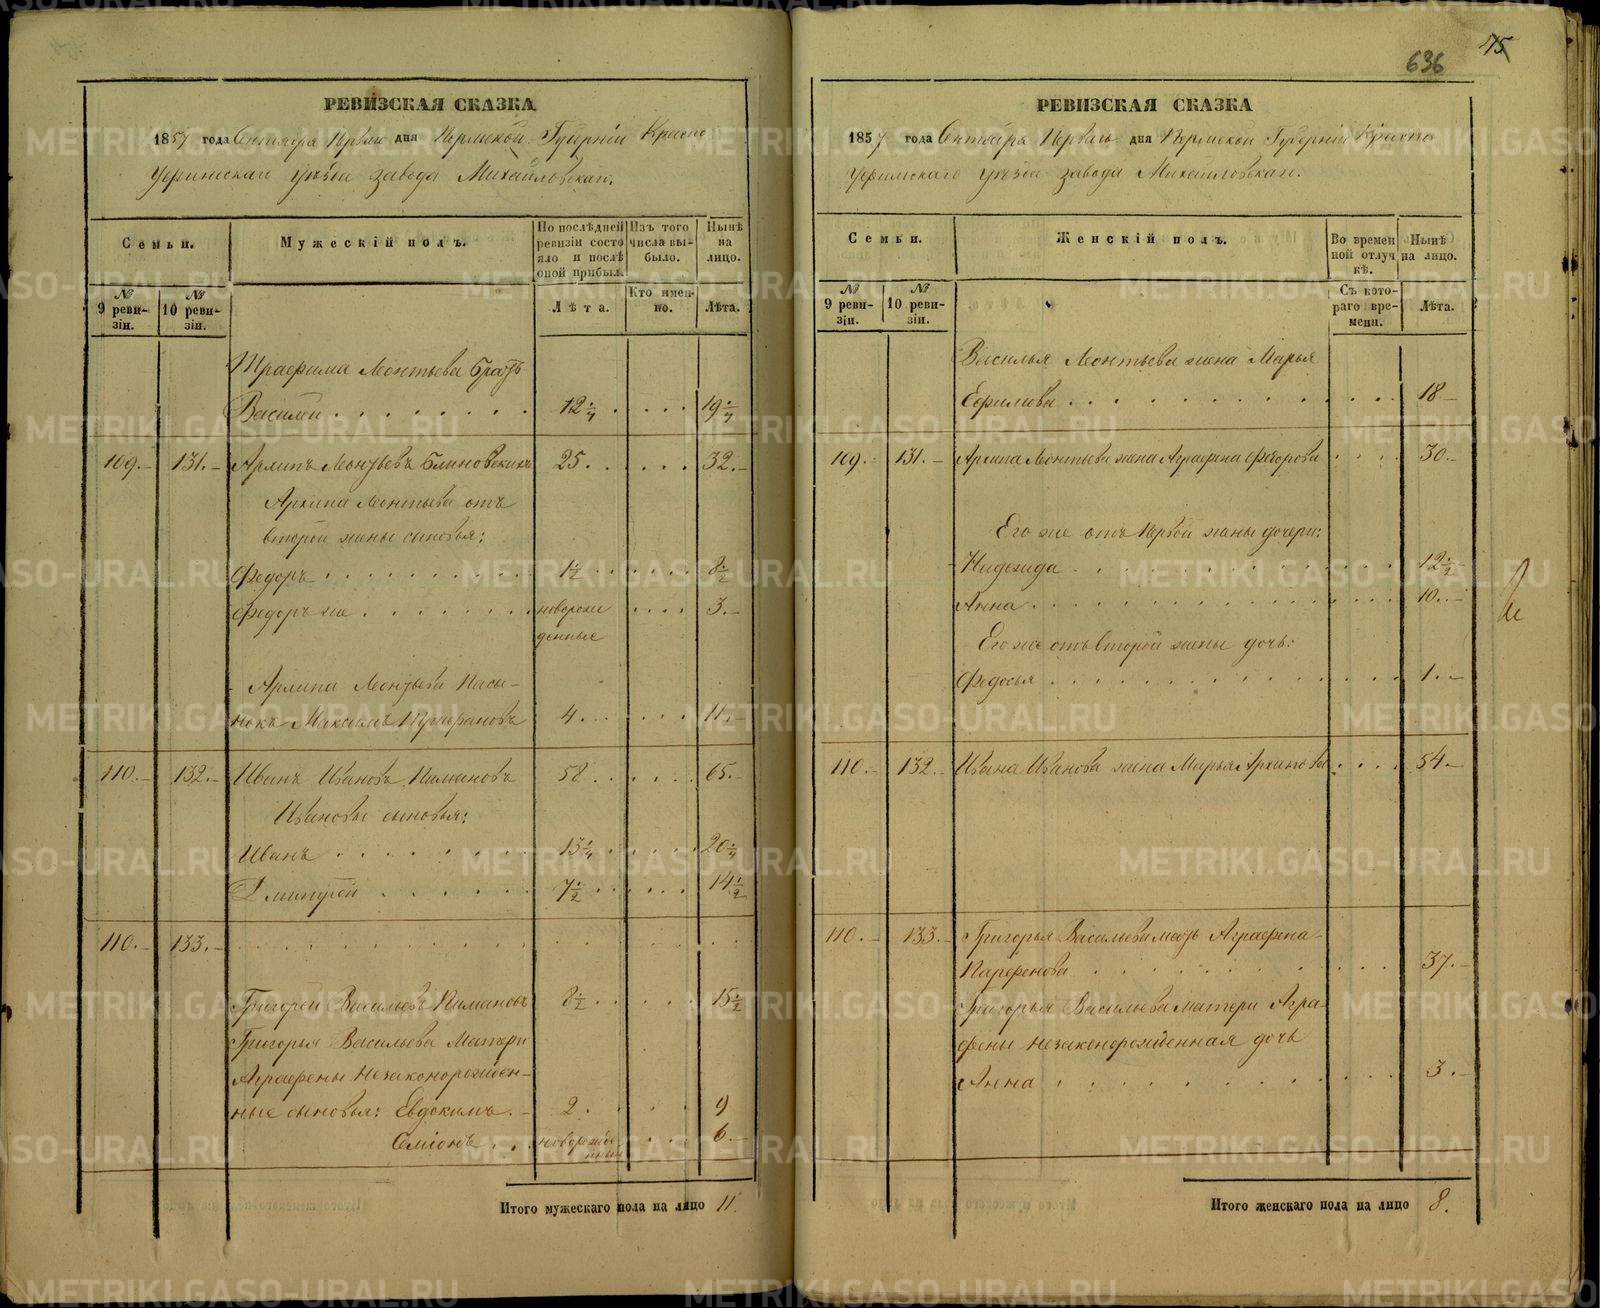 45
636
РЕВИЗСКАЯ СКАЗКА
1857 года Сентября Первое дня Пермской Губерніи Красно
Уфимскаго уѣзда завода Михайловскаго.
Семьи.
Мужескій полъ.
По послѣдней ревизіи состояло и послѣ оной прибыл.
Изъ того числа выбыло.
Нынѣ на лицо.
№ 9 ревизіи.
№ 10 ревизіи.
Лѣта.
Кто именно.
Лѣта.
Трафима Леонтьева братъ
Василей . . . . . . . . 12 1/4 . . . . 19 1/4
109.- 131.- Архипъ Леонтьевъ Блиновскихъ 25 . . . . . . 32.-
Архипа Леонтьева отъ
второй жены сыновья:
Федоръ . . . . . . . . 1 1/2 . . . . . 8 1/2
Федоръ же . . . . . . . новорож . . . . 3.-
денные
Архипа Леонтьева Пасы-
нокъ Максимъ 4 . . . . . . 11.-
110.- 132.- Иванъ Ивановъ Пимановъ 58 . . . . . . 65.-
Ивановы сыновья:
Иванъ . . . . . . . . 13 1/4 . . . . . 20 1/4
Дмитрей . . . . . . 7 1/2 . . . . . 14 1/2
110.- 133.- . . . . . . . . . . . .
Григорей Васильевъ Пимановъ 8 1/2 . . . . . 15 1/2
Григорья Васильева Матери
Аграфены Незаконорожден-
ные сыновья: Евдокимъ. - 2 . . . . 9
Семіонъ . . . новорожде . . . 6.-
нный
Итого мужескаго пола на лицо 11.
РЕВИЗСКАЯ СКАЗКА
1857 года Сентября Перваго дня Пермской Губерніи Красно
Уфимскаго уѣзда завода Михайловскаго.
Семьи.
Женскій полъ.
Во временной отлучкѣ.
Нынѣ на лицо.
№ 9 ревизіи.
№ 10 ревизіи.
Съ котораго времени.
Лѣта.
Василья Леонтьева жена Марья
Ефимова . . . . . . . . . . . . 18 -
109.- 131.- Архипа Леонтьева жена Аграфена Федорова . . . . 30.-
Его же отъ Первой жены дочери:
Надежида . . . . . . . . . . . . 12 1/2 -
Анна . . . . . . . . . . . . 10.-
Его же отъ второй жены дочь:
Федосья . . . . . . . . . . . . 1.-
110.- 132.- Ивана Иванова жена Марья Архипова . . . . 54.-
110.- 133.- Григорья Васильева мать Аграфена
Парфенова . . . . . . . . . . 37.-
Григорья Васильева матери Агра-
фены Незаконорожденная дочь
Анна . . . . . . . . . . . . 3.-
Итого женскаго пола на лицо 8.
METRIKI.GASO-URAL.RU